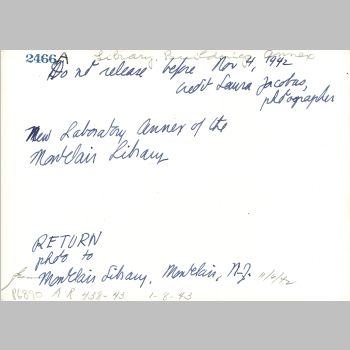 2466A Library, Buildings Annex
Do not release before Nov 4, 1942
Credit Laura Jacobus,
photographer
New Laboratory Annex of the
Montclair Library
RETURN
photo to
from Montclair Library, Montclair, N.J. 11/6/42
P6890 A R 438-43 1-8-43